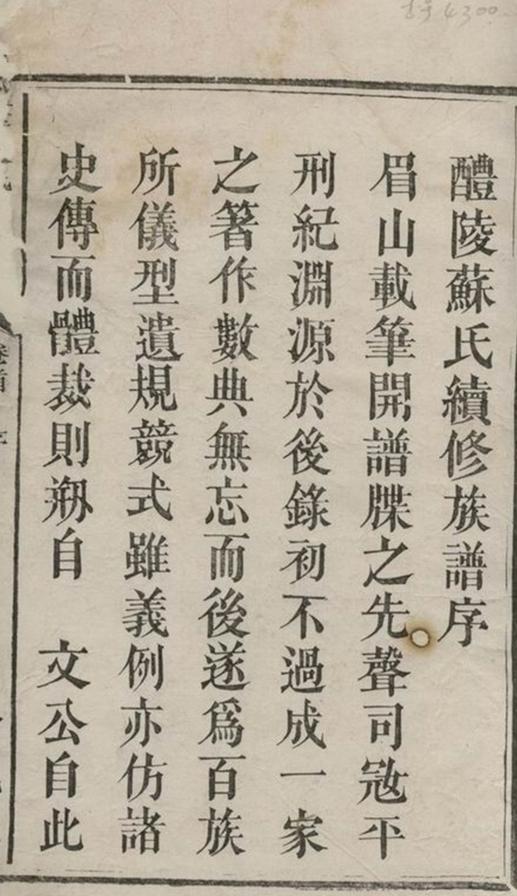 醴陵蘇氏續修族譜序
眉山載筆開譜牒之先聲司寇平
刑紀淵源於後錄初不過成一家
之箸作數典無忘而後遂爲百族
所儀型遺規競式雖義例亦仿諸
史傳而體裁則剙自　文公自此